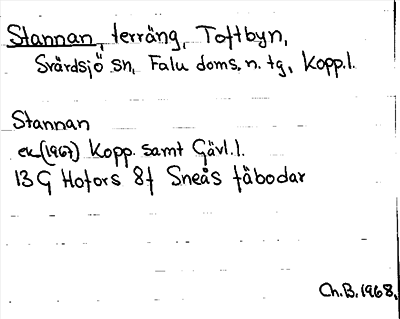 Stannan, terräng, Toftbyn,
Svärdsjö sn, Falu doms. n. tg, Kopp.l.
Stannan
ek(1967) Kopp. samt Gävl.l.
13 G Hofors 8f Sneås fäbodar
Ch.B. 1968.